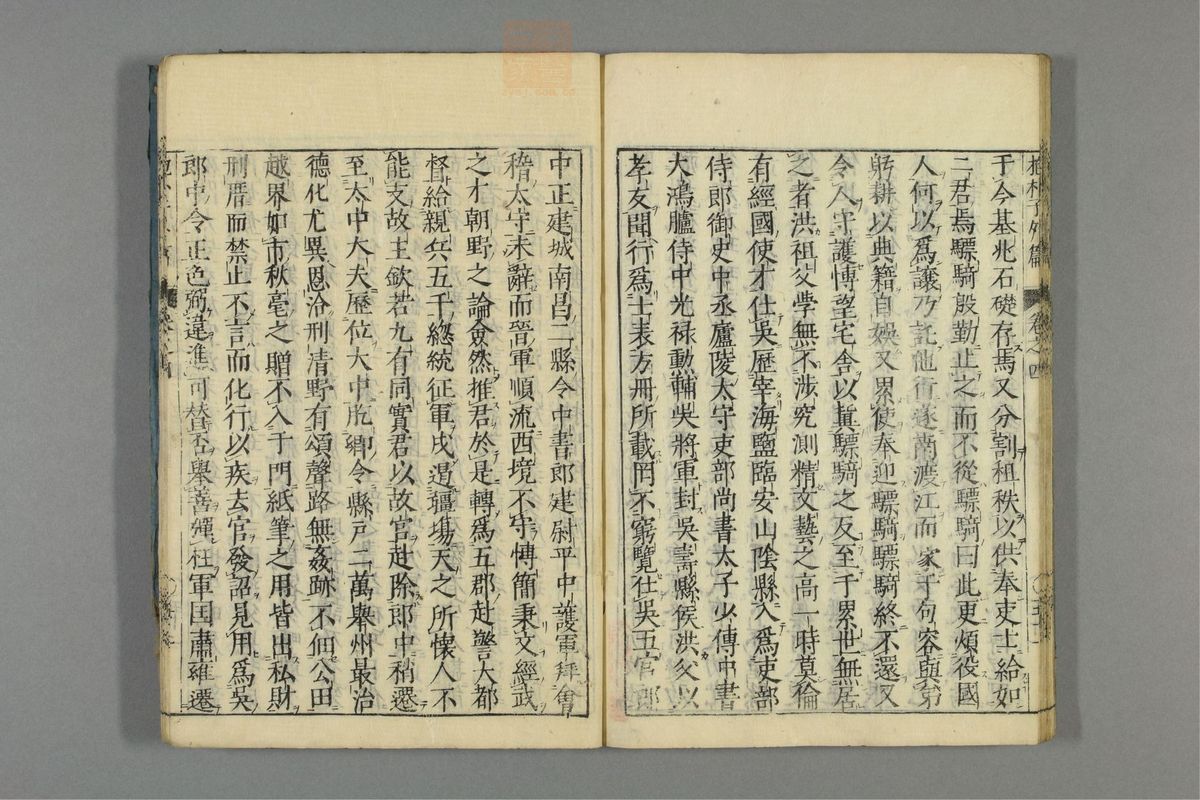 于今基兆石礎存焉又分割租秩以供奉吏士給如
二君焉驃騎殷勤止之而不從驃騎曰此更煩役國
人何以爲讓乃託他行遂南渡江而家于句容與弟
躬耕以典籍自娛又累使奉迎驃騎驃騎終不還又
令人守護博望宅舍以冀驃騎之反至于累世無居
之者洪祖父學無不涉究測精文藝之高一時莫倫
有經國使才仕吳歷宰海鹽臨安山陰縣入爲吏部
侍郎御史中丞廬陵太守吏部尚書太子少傅中書
大鴻臚侍中光祿勳輔吳將軍封吳壽縣侯洪父以
孝友聞行爲士表方冊所載罔不窮覽仕吳五官郎
中正建城南昌二縣令中書郎建尉平中護軍拜會
稽太守未辭而晉軍順流西境不守博簡秉文經武
之才朝野之論僉然推君於是轉爲五郡赴警大都
督給親兵五千總統征軍戍遏壃場天之所懷人不
能支故主欽若九有同實君以故官赴除郎中稍遷
至太中大夫歷位大中肶卿令縣戶二萬舉州最治
德化尤異恩洽刑清野有頌聲路無姦跡不佃公田
越界如市秋毫之贈不入于門紙筆之用皆出私財
刑厝而禁止不言而化行以疾去官發詔見用爲吳
郎中令正色弼違進可替否舉善彈枉軍国肅雍遷
抱朴子外篇